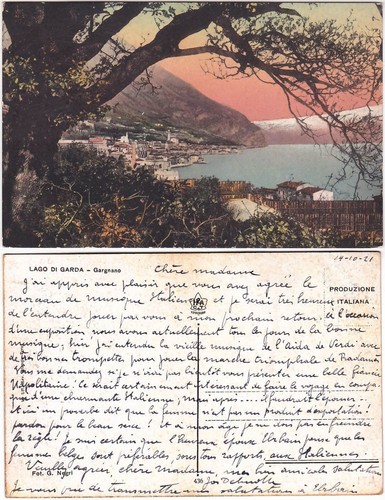 LAGO DI GARDA – Gargnano
14-10-21
Chère madame
J'ai appris avec plaisir que vous avez agréé le
PRODUZIONE
morceau de musique Italienne et je serai très heureux
ITALIANA
de l'entendre jouer par vous à mon prochain retour. à l'occasion
d'une exposition nous avons actuellement tous les jours de la bonne
musique; hier j'ai entendu la vieille musique de l'aida de Verdi avec
de si bonnes trompettes pour jouer la marche triomphale de Radamès
Vous me demandez si je n'irai pas bientôt vous présenter une belle fiancée
Napolitaine; ce serait certainement intéressant de faire le voyage en compa-
gnie d'une charmante Italienne; mais après... il faudrait l'épouser...
et ici un proverbe dit que la femme n'est pas un produit d'exportation!
pardon pour le beau sexe! et à mon âge je ne dois pas enfreindre
la règle! Je suis certain que l'heureux époux Urbain pense que les
femmes belges sont préférables, sous tous rapports, aux Italiennes.
Veuillez agréer, chère madame, mes bien amicales salutations
Fot. G. Negri
436
Jos
Je vous prie de transmettre mes salutations à Urbain